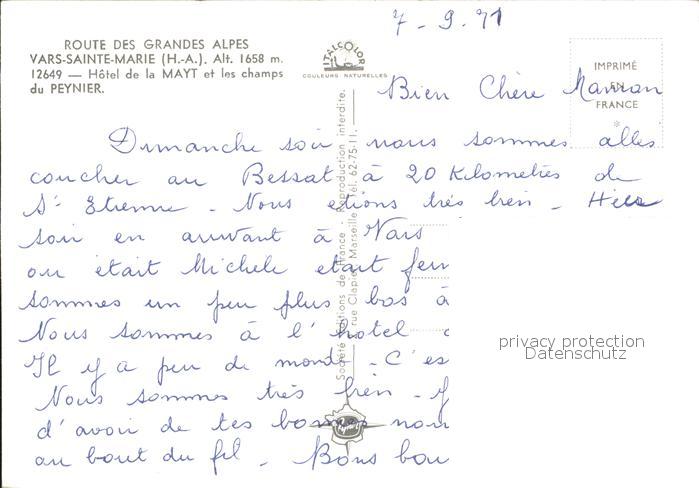 7-9.71
ROUTE DES GRANDES ALPES
VARS-SAINTE-MARIE (H.-A.). Alt. 1658 m.
12649 — Hôtel de la MAYT et les champs
du PEYNIER.
ITALCOLOR
COULEURS NATURELLES
IMPRIMÉ
EN
FRANCE
Bien Chère Maman
Dimanche soir nous sommes allés
coucher au Bessat à 20 Kilomètres de
St Etienne - Nous etions très bien - Hier
soir en arrivant à Vars
ou était Michele etait fer
sommes un peu plus bas à
Nous sommes à l'hotel
Il y a peu de monde - C'es
Nous sommes très bien - J
d'avoir de tes bonnes nou
au bout du fil - Bons bou
Société Editions de France - Reproduction interdite.
rue Clapier, Marseille - Tél. 62-75-11.
privacy protection
Datenschutz